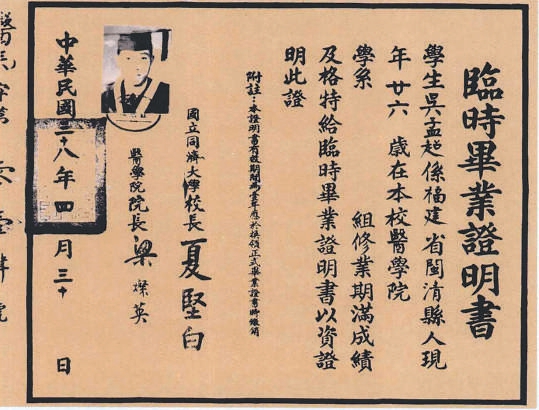 臨時畢業證明書
學生吳孟超係福建省閩清縣人現
年廿六歲在本校醫學院
學系 組修業期滿成績
及格特給臨時畢業證明書以資證
明此證
附註：本證明書有效期間為壹年應於換領正式畢業證書時繳銷
國立同濟大學校長夏堅白
醫學院院長梁燦英
中華民國三十八年四月三十日